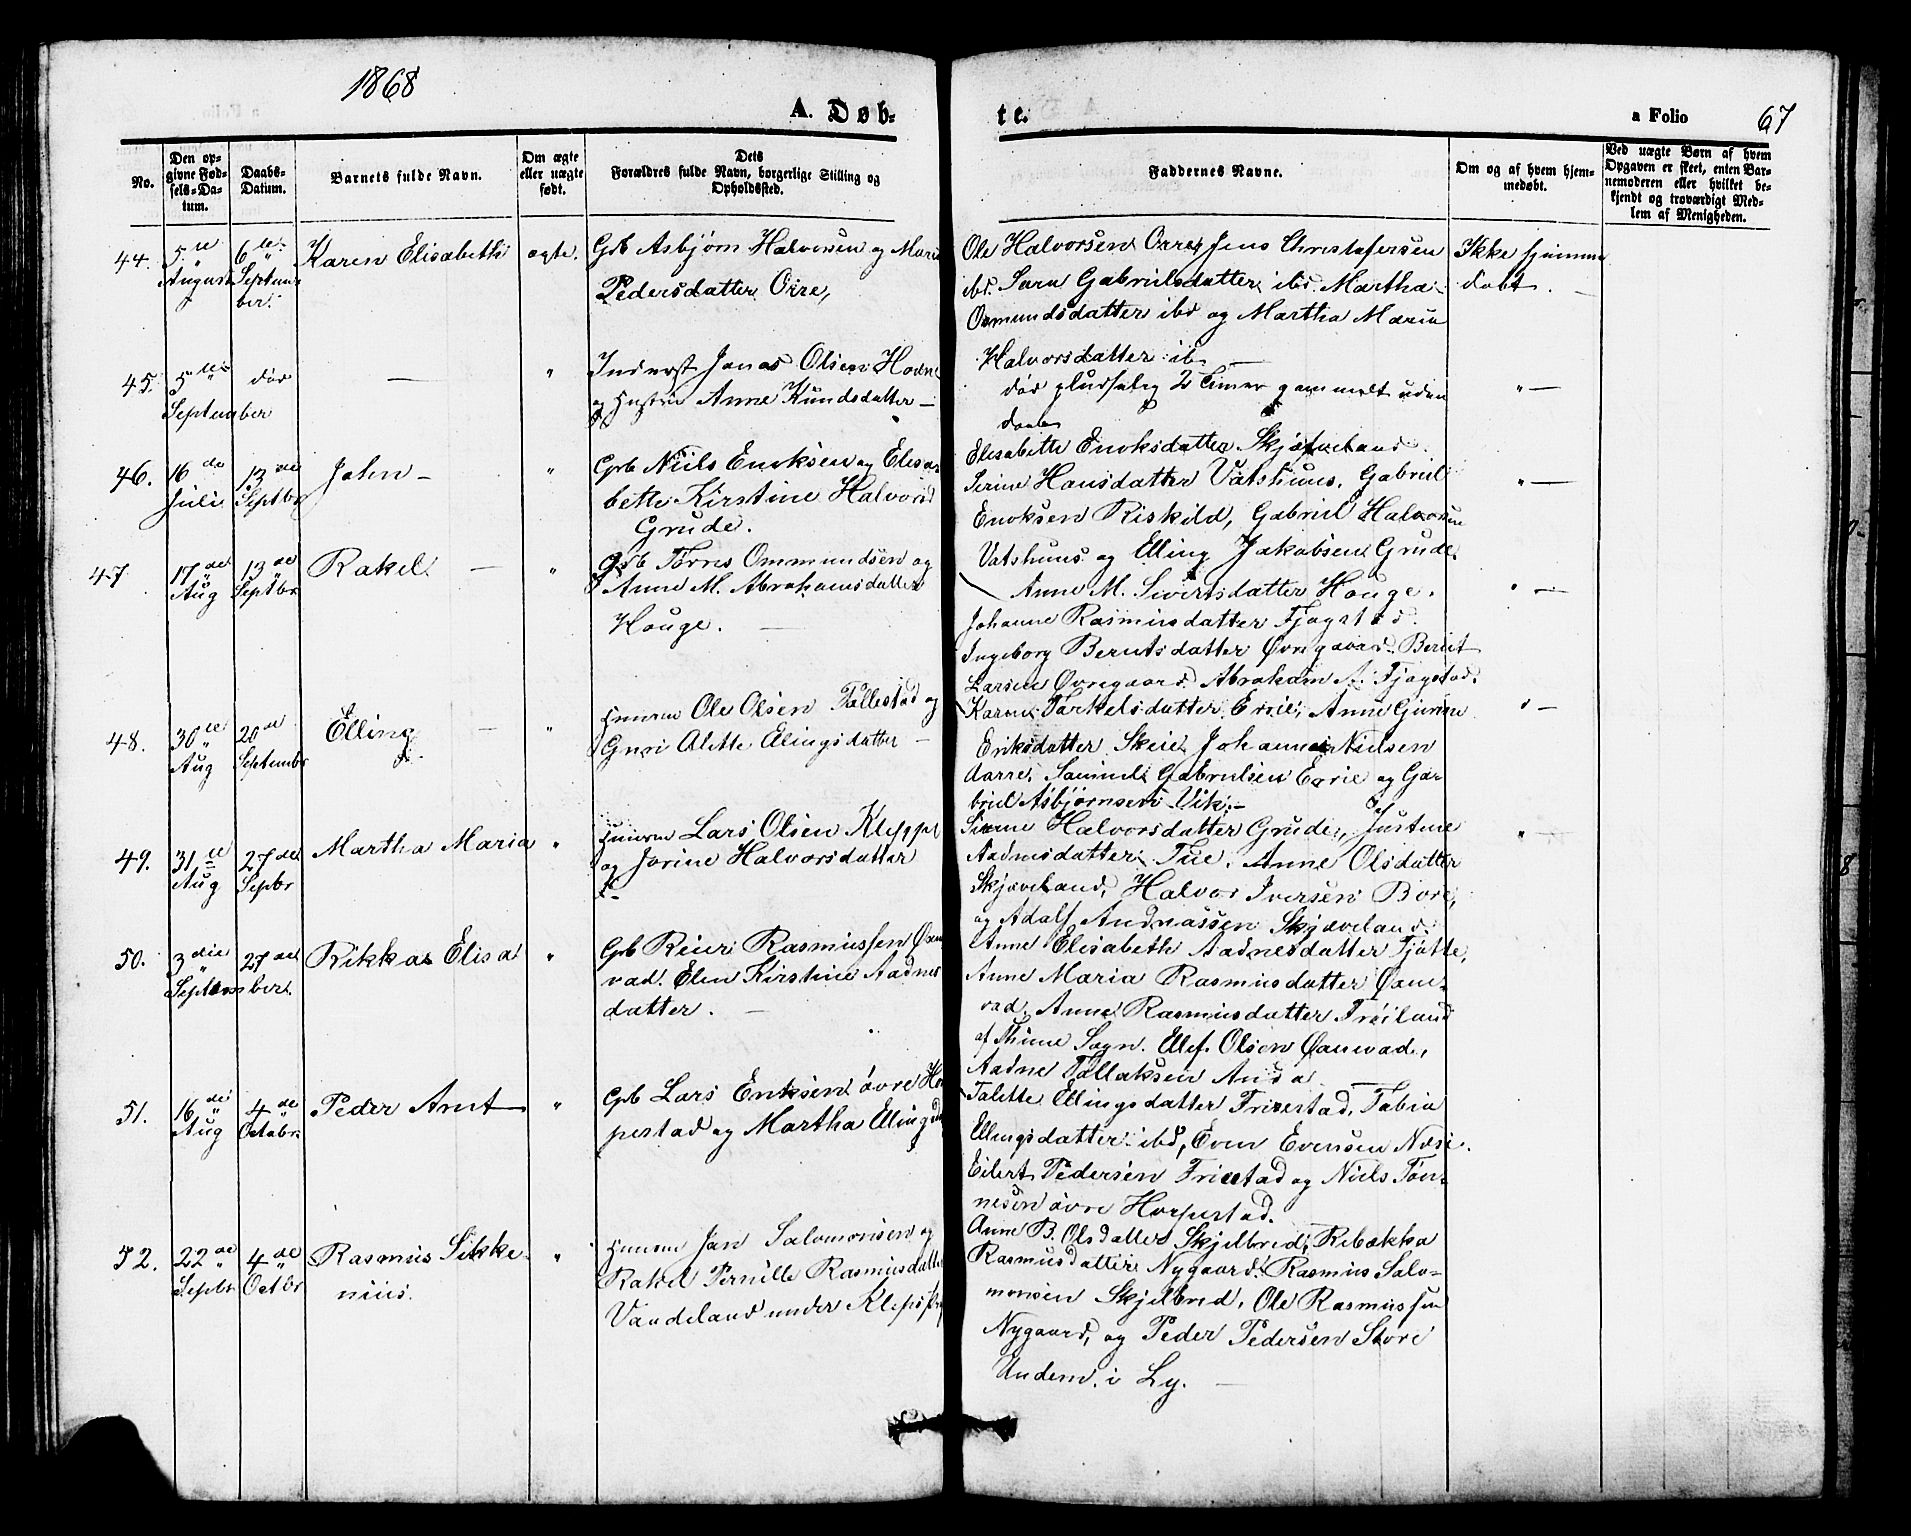 1868
A. Døb-
te.
a Folio 67
No.
Den op-
givne Fød-
sels-Da-
tum.
Daabs-
Datum.
Barnets fulde Navn.
Om ægte
eller uægte
født.
Dets
Forældres fulde Navn, borgerlige Stilling og
Opholdssted.
Faddernes Navne.
Om og af hvem hjem-
medøbt.
Ved uægte Børn af hvem
Opgaven er skeet, enten Bar-
nemoderen eller hvilket be-
kjendt og troværdigt Med-
lem af Menigheden.
44.
5te
August
6te
Septem-
ber.
Karen Elisabeth
ægte.
Grb Asbjørn Halvorsen og Maria
Pedersdatter Orre,
Ole Halvorsen Orre, Jens Christofersen
ibd. Sara Gabrielsdatter ibd. Martha
Osmundsdatter ibd og Martha Maria
Halvorsdatter ib.
Ikke hjemme
døbt.
45.
5te
September
død
—
"
Inderst Jonas Olsen Hodne
og Hustru Anne Knudsdatter —
død pludselig 2 Timer gammelt uden
daab
" —
46.
16de
Juli
13de
Septbr
John —
"
Grb Niels Enoksen og Elisa-
bette Kirstine Halvorsd
Grude.
Elisabette Enoksdatter Skjæveland.
Serine Hansdatter Vatshuus, Gabriel
Enoksen Riskild, Gabriel Halvorsen
Vatshuus og Elling Jakobsen Grude.
" —
47
17de
Aug
13de
Septbr
Rakel. —
"
Grb Tørres Ommundsen og
Anne M. Abrahamsdatter
Houge. —
Anne M. Sivertsdatter Houge.
Johanne Rasmusdatter Fjogstad.
Ingeborg Berntsdatter Øvregaard. Bernt
Larsen Øvregaard. Abraham A. Fjogstad.
" —
48.
30te
Aug
20de
Septembr
Elling —
"
Huusm Ole Olsen Tallestad og
Guri Alette Elingsdatter —
Karen Tarkelsdatter Ersie, Anne Gurine
Eriksdatter Skeie, Johannes Nielsen
Aarre, Samuel Gabrielsen Ersie og Ga-
briel Asbjørnsen Vik. —
" —
49.
31te
Aug
27de
Sepbr
Martha Maria
"
Huusm Lars Olsen Kleppe
og Jorine Halvorsdatter
Sirene Halvorsdatter Grude, Justine
Aadnesdatter Tue. Anne Olsdatter
Skjæveland, Halvor Iversen Bore,
og Adolf Andreassen Skjæveland.
" —
50.
3die
September.
27de
Rikka Elisa
"
Grb Reier Rasmussen Øxne-
vad. Elen Kirstine Aadnes
datter. —
Anne Elisabeth Aadnesdatter Fjotte,
Anne Maria Rasmusdatter Øxne-
vad. Anne Rasmusdatter Frøiland
af Thime Sogn. Ellef Olsen Øxnevad.
Aadne Tollaksen Anda —
51.
16de
Aug
4de
Octobr.
Peder Arnt
"
Grb Lars Eriksen øvre Hor
pestad og Martha Ellingsd
Talette Ellingsdatter Friestad, Tobia
Ellingsdatter ibd, Even Evensen Næsse
Eilert Pedersen Friestad og Niels Tøn-
nesen øvre Horpestad.
52.
22de
Sepbr
4de
Octbr
Rasmus Sikke-
nius.
"
Huusm Jan Salomonsen og
Rakel Pernille Rasmusdatter
Vaudeland under Kleps Pr
Anne B. Olsdatter Skjelbred, Rebekka
Rasmusdatter Nygaard, Rasmus Salo-
monsen Skjelbred, Ole Rasmussen
Nygaard, og Peder Pedersen Store
Undem. i Ly. —